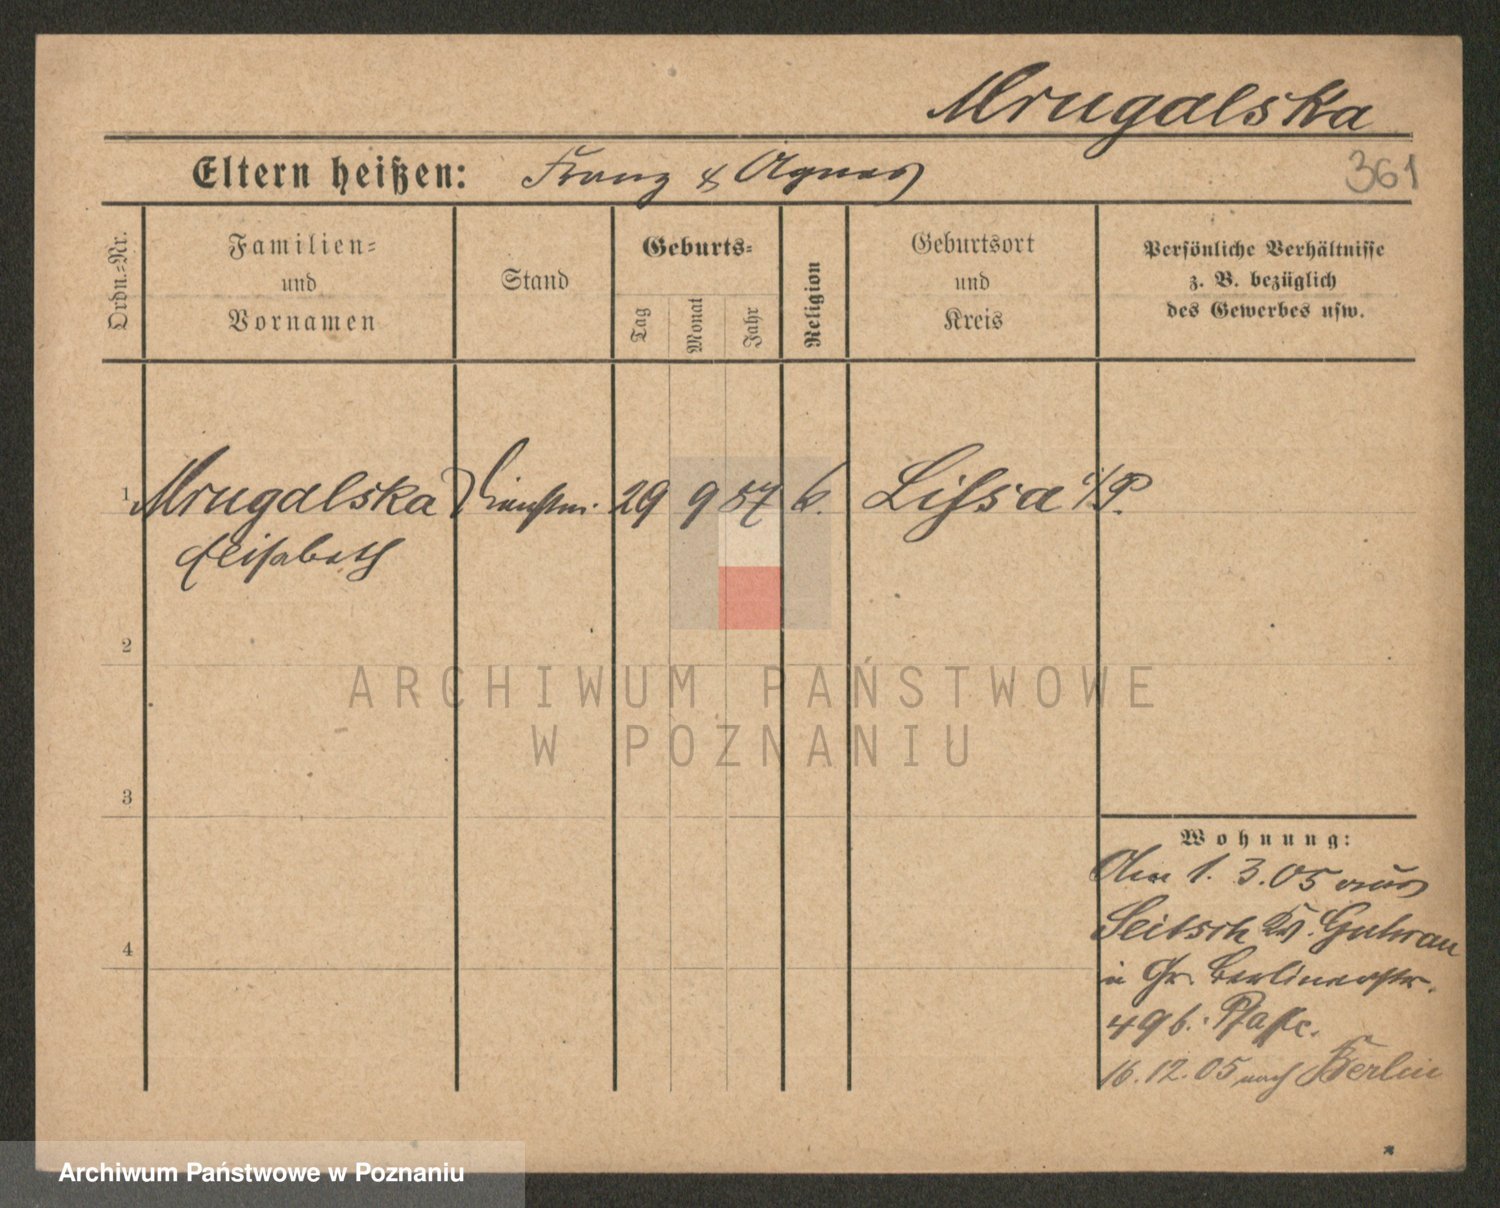 Mrugalska
Eltern heißen: Franz & Agnes
361
Ordn.=Nr.
Familien=
und
Vornamen
Stand
Geburts=
Tag
Monat
Jahr
Religion
Geburtsort
und
Kreis
Persönliche Verhältnisse
z. B. bezüglich
des Gewerbes usw.
1 Mrugalska Dienstm. 29 9 87 k. Lissa i/P.
Elisabeth
2
ARCHIWUM PAŃSTWOWE
W POZNANIU
3
4
Wohnung:
Am 1. 3. 05 aus
Seitsch Kr. Guhrau
in Gr. Berlinerstr.
49 b. Pfaffe.
16. 12. 05 nach Berlin
Archiwum Państwowe w Poznaniu